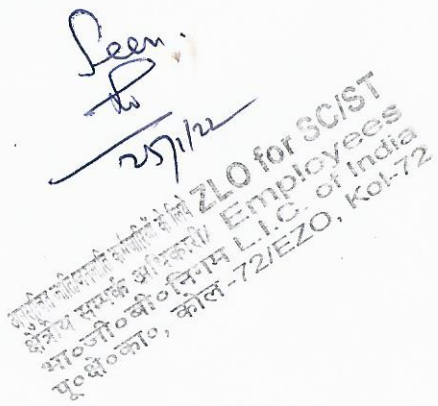 Seen.
25/1/22
अनुसूचित जाति/जनजाति कर्मचारियों के लिये ZLO for SC/ST
क्षेत्रीय सम्पर्क अधिकारी/ Employees
भा०जी०बी०निगम L.I.C. of India
पू०क्षे०का०, कोल-72/EZO, Kol-72